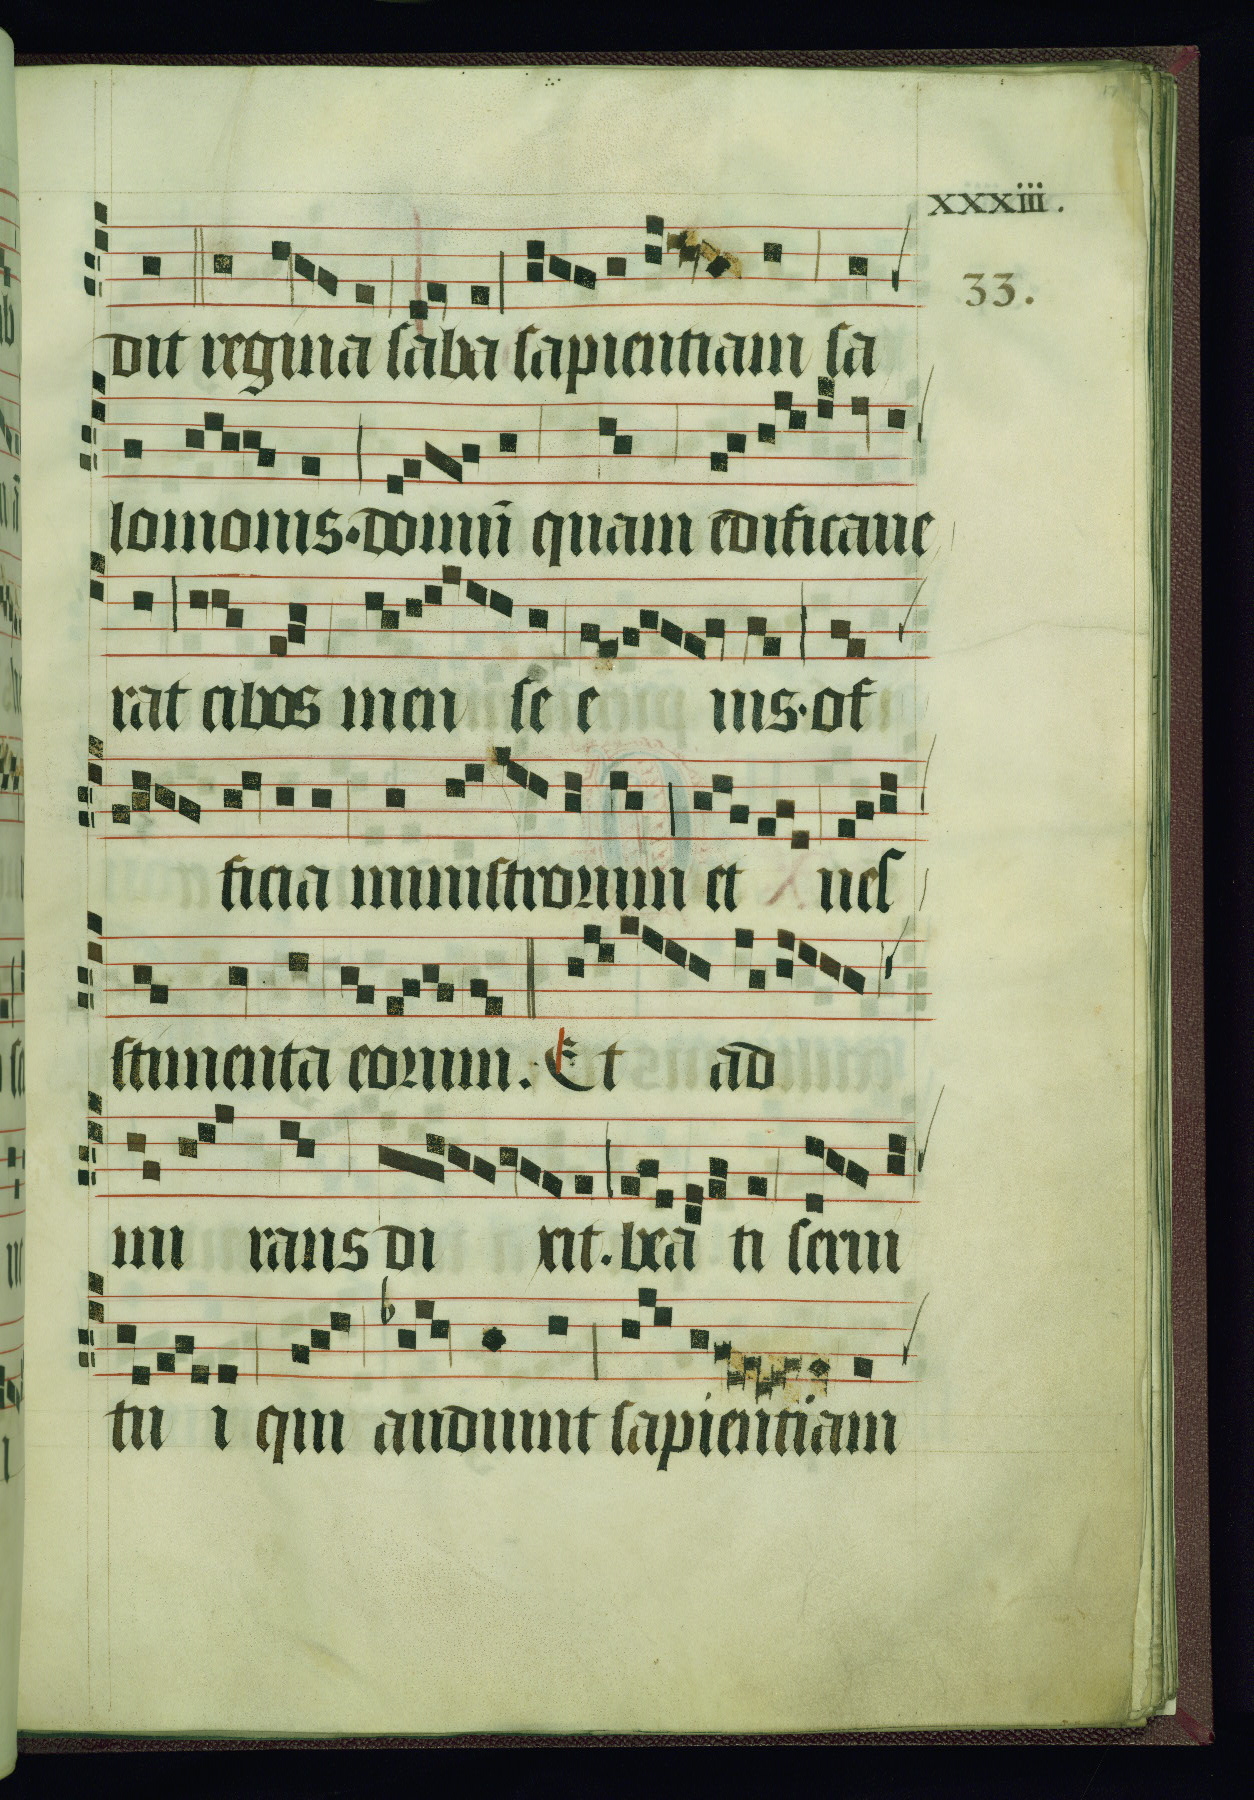 xxxiii.
33.
dit regina saba sapientiam sa
lomonis·domū quam edificaue
rat cibos men se e ius·of
ficia ministrorum et ues
timenta eorum. Et ad
mi rans di xit. bea ti serui
tu i qui audiunt sapientiam